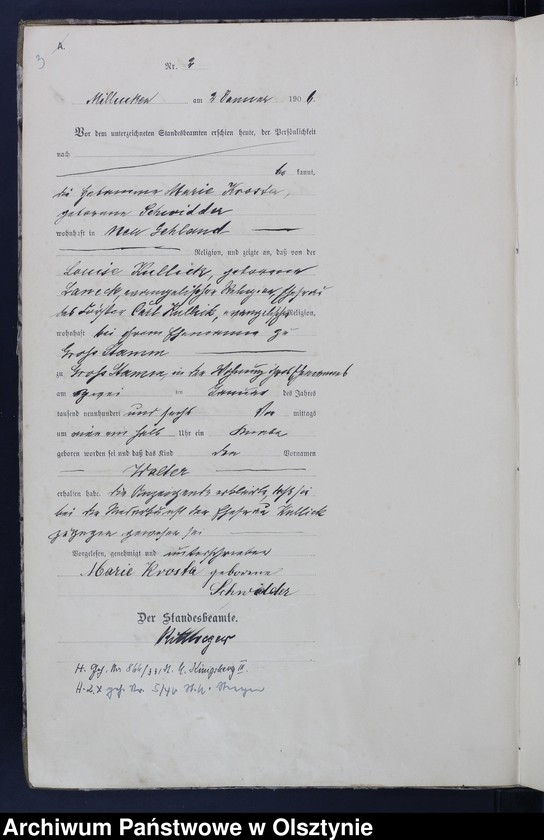 3
A.
Nr. 2
Millucken am 2 Januar 1906.
Vor dem unterzeichneten Standesbeamten erschien heute, der Persönlichkeit
nach
be kannt,
die Hebamme Marie Krosta,
geborene Schwidder
wohnhaft in Neu Gehland
Religion, und zeigte an, daß von der
Louise Kullick, geborenen
evangelischer Religion, Ehefrau
des Carl Kullick, evangelischer Religion,
wohnhaft bei ihrem Ehemanne zu
Groß Stamm
zu Groß Stamm, in der Wohnung ihres Ehemannes
am zwei ten Januar des Jahres
tausend neunhundert und sechs Vor mittags
um ein halb Uhr ein Knabe
geboren worden sei und daß das Kind den Vornamen
Walter
erhalten habe. Die Anzeigende erklärte, daß sie
bei der Niederkunft der Ehefrau Kullick
zugegen gewesen sei
Vorgelesen, genehmigt und unterschrieben
Marie Krosta geborene
Schwidder
Der Standesbeamte.
H. Gef. Nr. 866/33 St. A. Königsberg II.
Archiwum Państwowe w Olsztynie